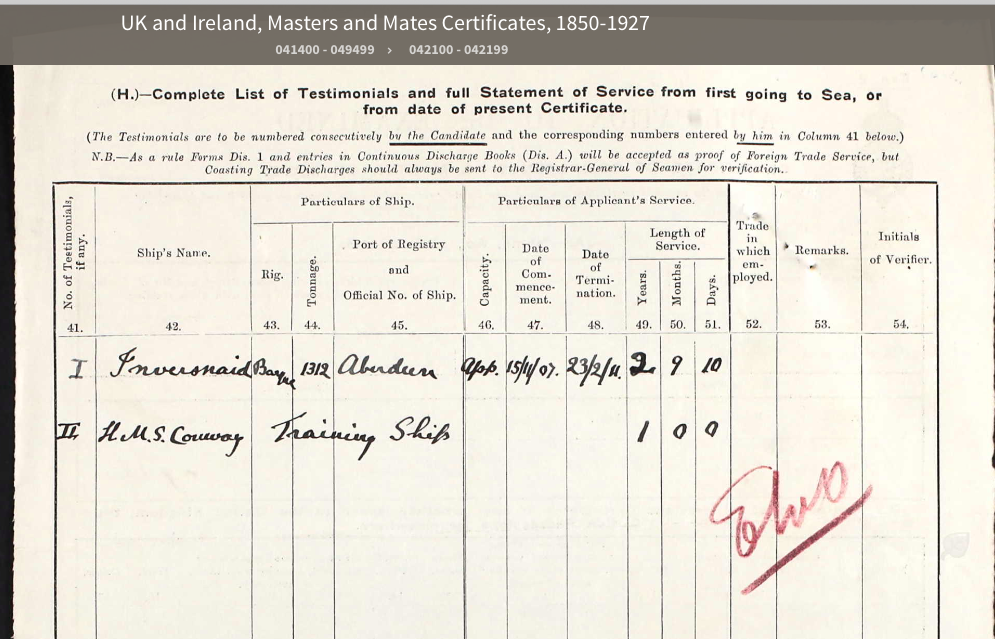 UK and Ireland, Masters and Mates Certificates, 1850-1927
041400 - 049499 › 042100 - 042199
(H.)—Complete List of Testimonials and full Statement of Service from first going to Sea, or
from date of present Certificate.
(The Testimonials are to be numbered consecutively by the Candidate and the corresponding numbers entered by him in Column 41 below.)
N.B.—As a rule Forms Dis. 1 and entries in Continuous Discharge Books (Dis. A.) will be accepted as proof of Foreign Trade Service, but
Coasting Trade Discharges should always be sent to the Registrar-General of Seamen for verification.
Particulars of Ship. Particulars of Applicant's Service.
No. of Testimonials, if any.
Ship's Name.
Rig.
Tonnage.
Port of Registry
and
Official No. of Ship.
Capacity.
Date
of
Com-
mence-
ment.
Date
of
Termi-
nation.
Length of
Service.
Years.
Months.
Days.
Trade
in
which
em-
ployed.
Remarks.
Initials
of Verifier.
41. 42. 43. 44. 45. 46. 47. 48. 49. 50. 51. 52. 53. 54.
I Inversnaid Barque 1312 Aberdeen App. 15/11/07. 23/2/11. 2 9 10
II H.M.S. Conway Training Ship 1 0 0